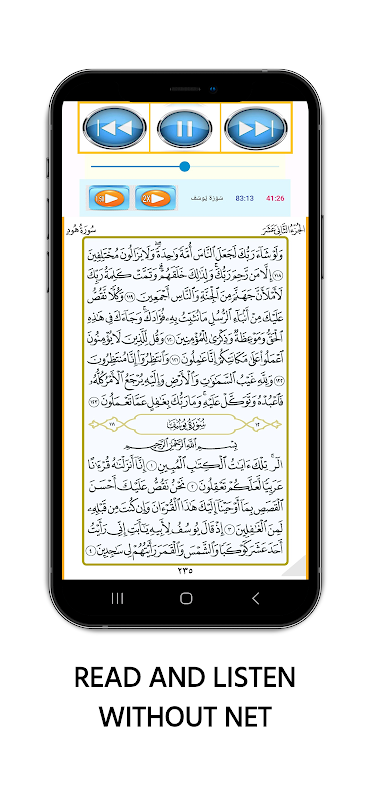 2X
سورة يوسف 83:13 41:26
الجزء الثاني عشر سورة هود
وَلَوْ شَآءَ رَبُّكَ لَجَعَلَ ٱلنَّاسَ أُمَّةً وَٰحِدَةً ۖ وَلَا يَزَالُونَ مُخْتَلِفِينَ
١١٨ إِلَّا مَن رَّحِمَ رَبُّكَ ۚ وَلِذَٰلِكَ خَلَقَهُمْ ۗ وَتَمَّتْ كَلِمَةُ رَبِّكَ
لَأَمْلَأَنَّ جَهَنَّمَ مِنَ ٱلْجِنَّةِ وَٱلنَّاسِ أَجْمَعِينَ ١١٩ وَكُلًّا نَّقُصُّ
عَلَيْكَ مِنْ أَنۢبَآءِ ٱلرُّسُلِ مَا نُثَبِّتُ بِهِۦ فُؤَادَكَ ۚ وَجَآءَكَ فِي هَٰذِهِ
ٱلْحَقُّ وَمَوْعِظَةٌ وَذِكْرَىٰ لِلْمُؤْمِنِينَ ١٢٠ وَقُل لِّلَّذِينَ لَا يُؤْمِنُونَ
ٱعْمَلُوا۟ عَلَىٰ مَكَانَتِكُمْ إِنَّا عَٰمِلُونَ ١٢١ وَٱنتَظِرُوٓا۟ إِنَّا مُنتَظِرُونَ
١٢٢ وَلِلَّهِ غَيْبُ ٱلسَّمَٰوَٰتِ وَٱلْأَرْضِ وَإِلَيْهِ يُرْجَعُ ٱلْأَمْرُ كُلُّهُۥ
فَٱعْبُدْهُ وَتَوَكَّلْ عَلَيْهِ ۚ وَمَا رَبُّكَ بِغَٰفِلٍ عَمَّا تَعْمَلُونَ ١٢٣
سورة يوسف
بِسْمِ ٱللَّهِ ٱلرَّحْمَٰنِ ٱلرَّحِيمِ
الٓر ۚ تِلْكَ ءَايَٰتُ ٱلْكِتَٰبِ ٱلْمُبِينِ ١ إِنَّآ أَنزَلْنَٰهُ قُرْءَٰنًا
عَرَبِيًّا لَّعَلَّكُمْ تَعْقِلُونَ ٢ نَحْنُ نَقُصُّ عَلَيْكَ أَحْسَنَ
ٱلْقَصَصِ بِمَآ أَوْحَيْنَآ إِلَيْكَ هَٰذَا ٱلْقُرْءَانَ وَإِن كُنتَ مِن قَبْلِهِۦ
لَمِنَ ٱلْغَٰفِلِينَ ٣ إِذْ قَالَ يُوسُفُ لِأَبِيهِ يَٰٓأَبَتِ إِنِّي رَأَيْتُ
أَحَدَ عَشَرَ كَوْكَبًا وَٱلشَّمْسَ وَٱلْقَمَرَ رَأَيْتُهُمْ لِي سَٰجِدِينَ ٤
٢٣٥
READ AND LISTEN
WITHOUT NET